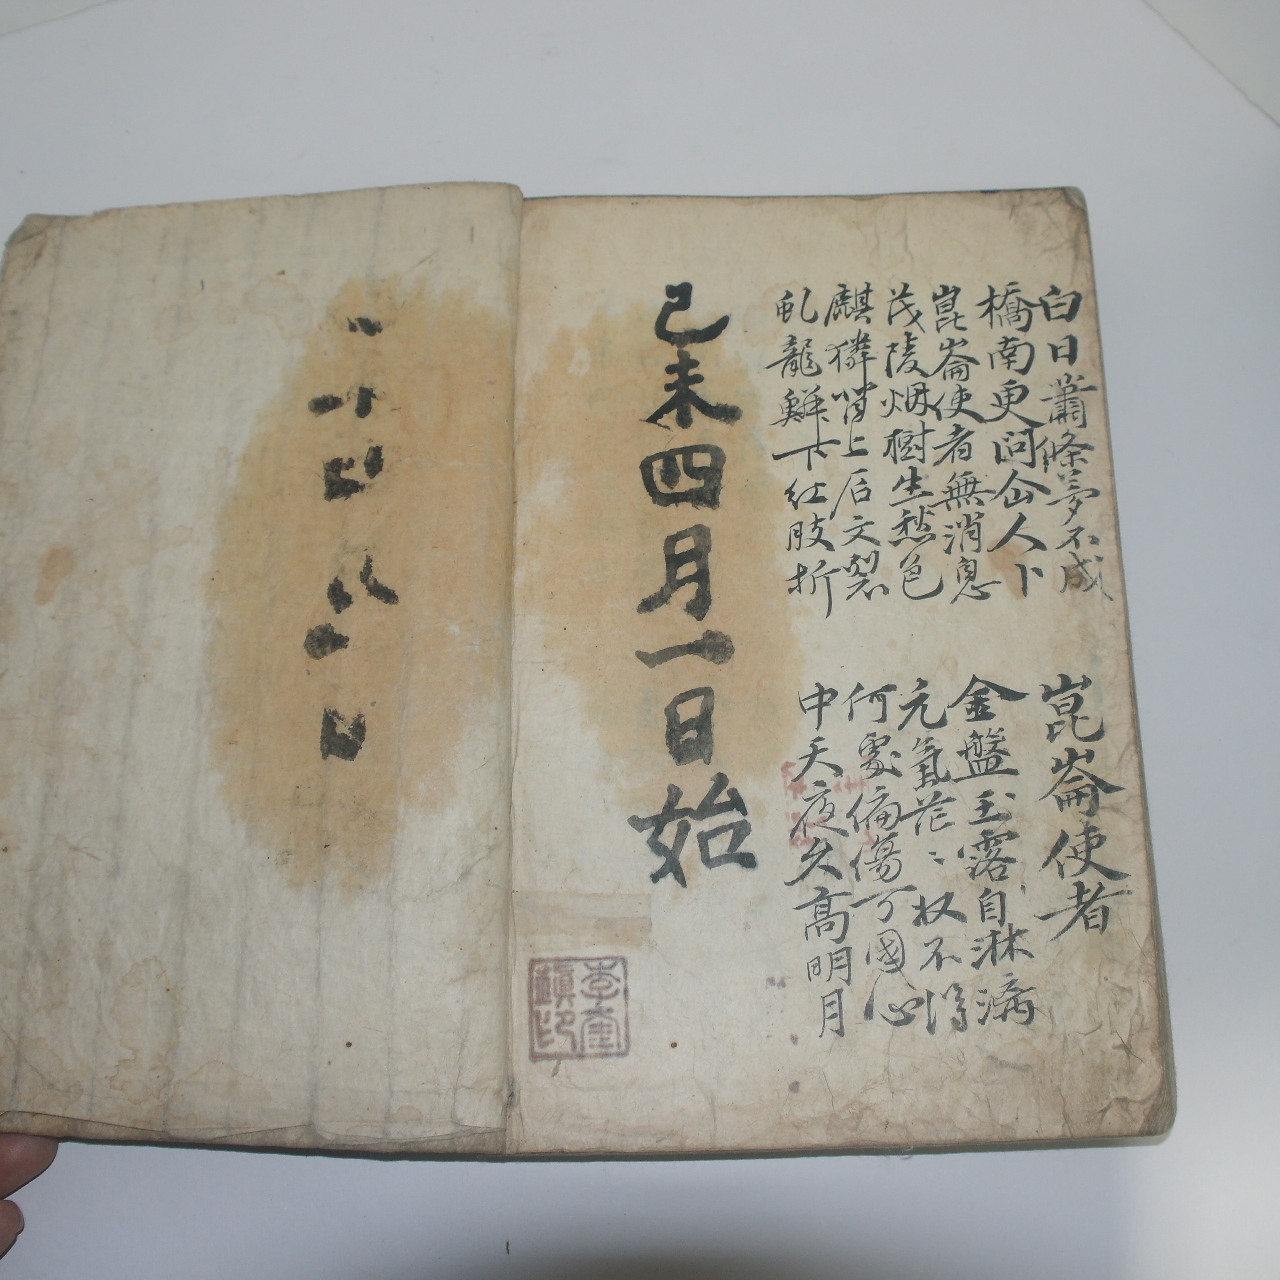 白日蕭條夢不成
橋南更問仚人卜
崑崙使者無消息
茂陵烟樹生愁色
麒獜背上石文裂
虬龍鱗下红肢折
崑崙使者
金盤玉露自淋漓
元氣茫〻収不得
何處偏傷万國心
中天夜久高明月
己未四月一日始
李奎鎭印